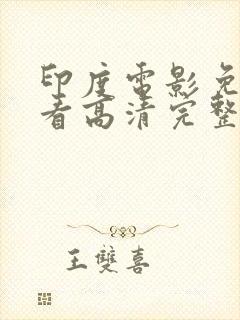 印度电影免
看高清完整
王雙喜